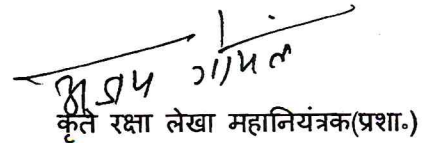 गोयल
कृते रक्षा लेखा महानियंत्रक(प्रशा०)